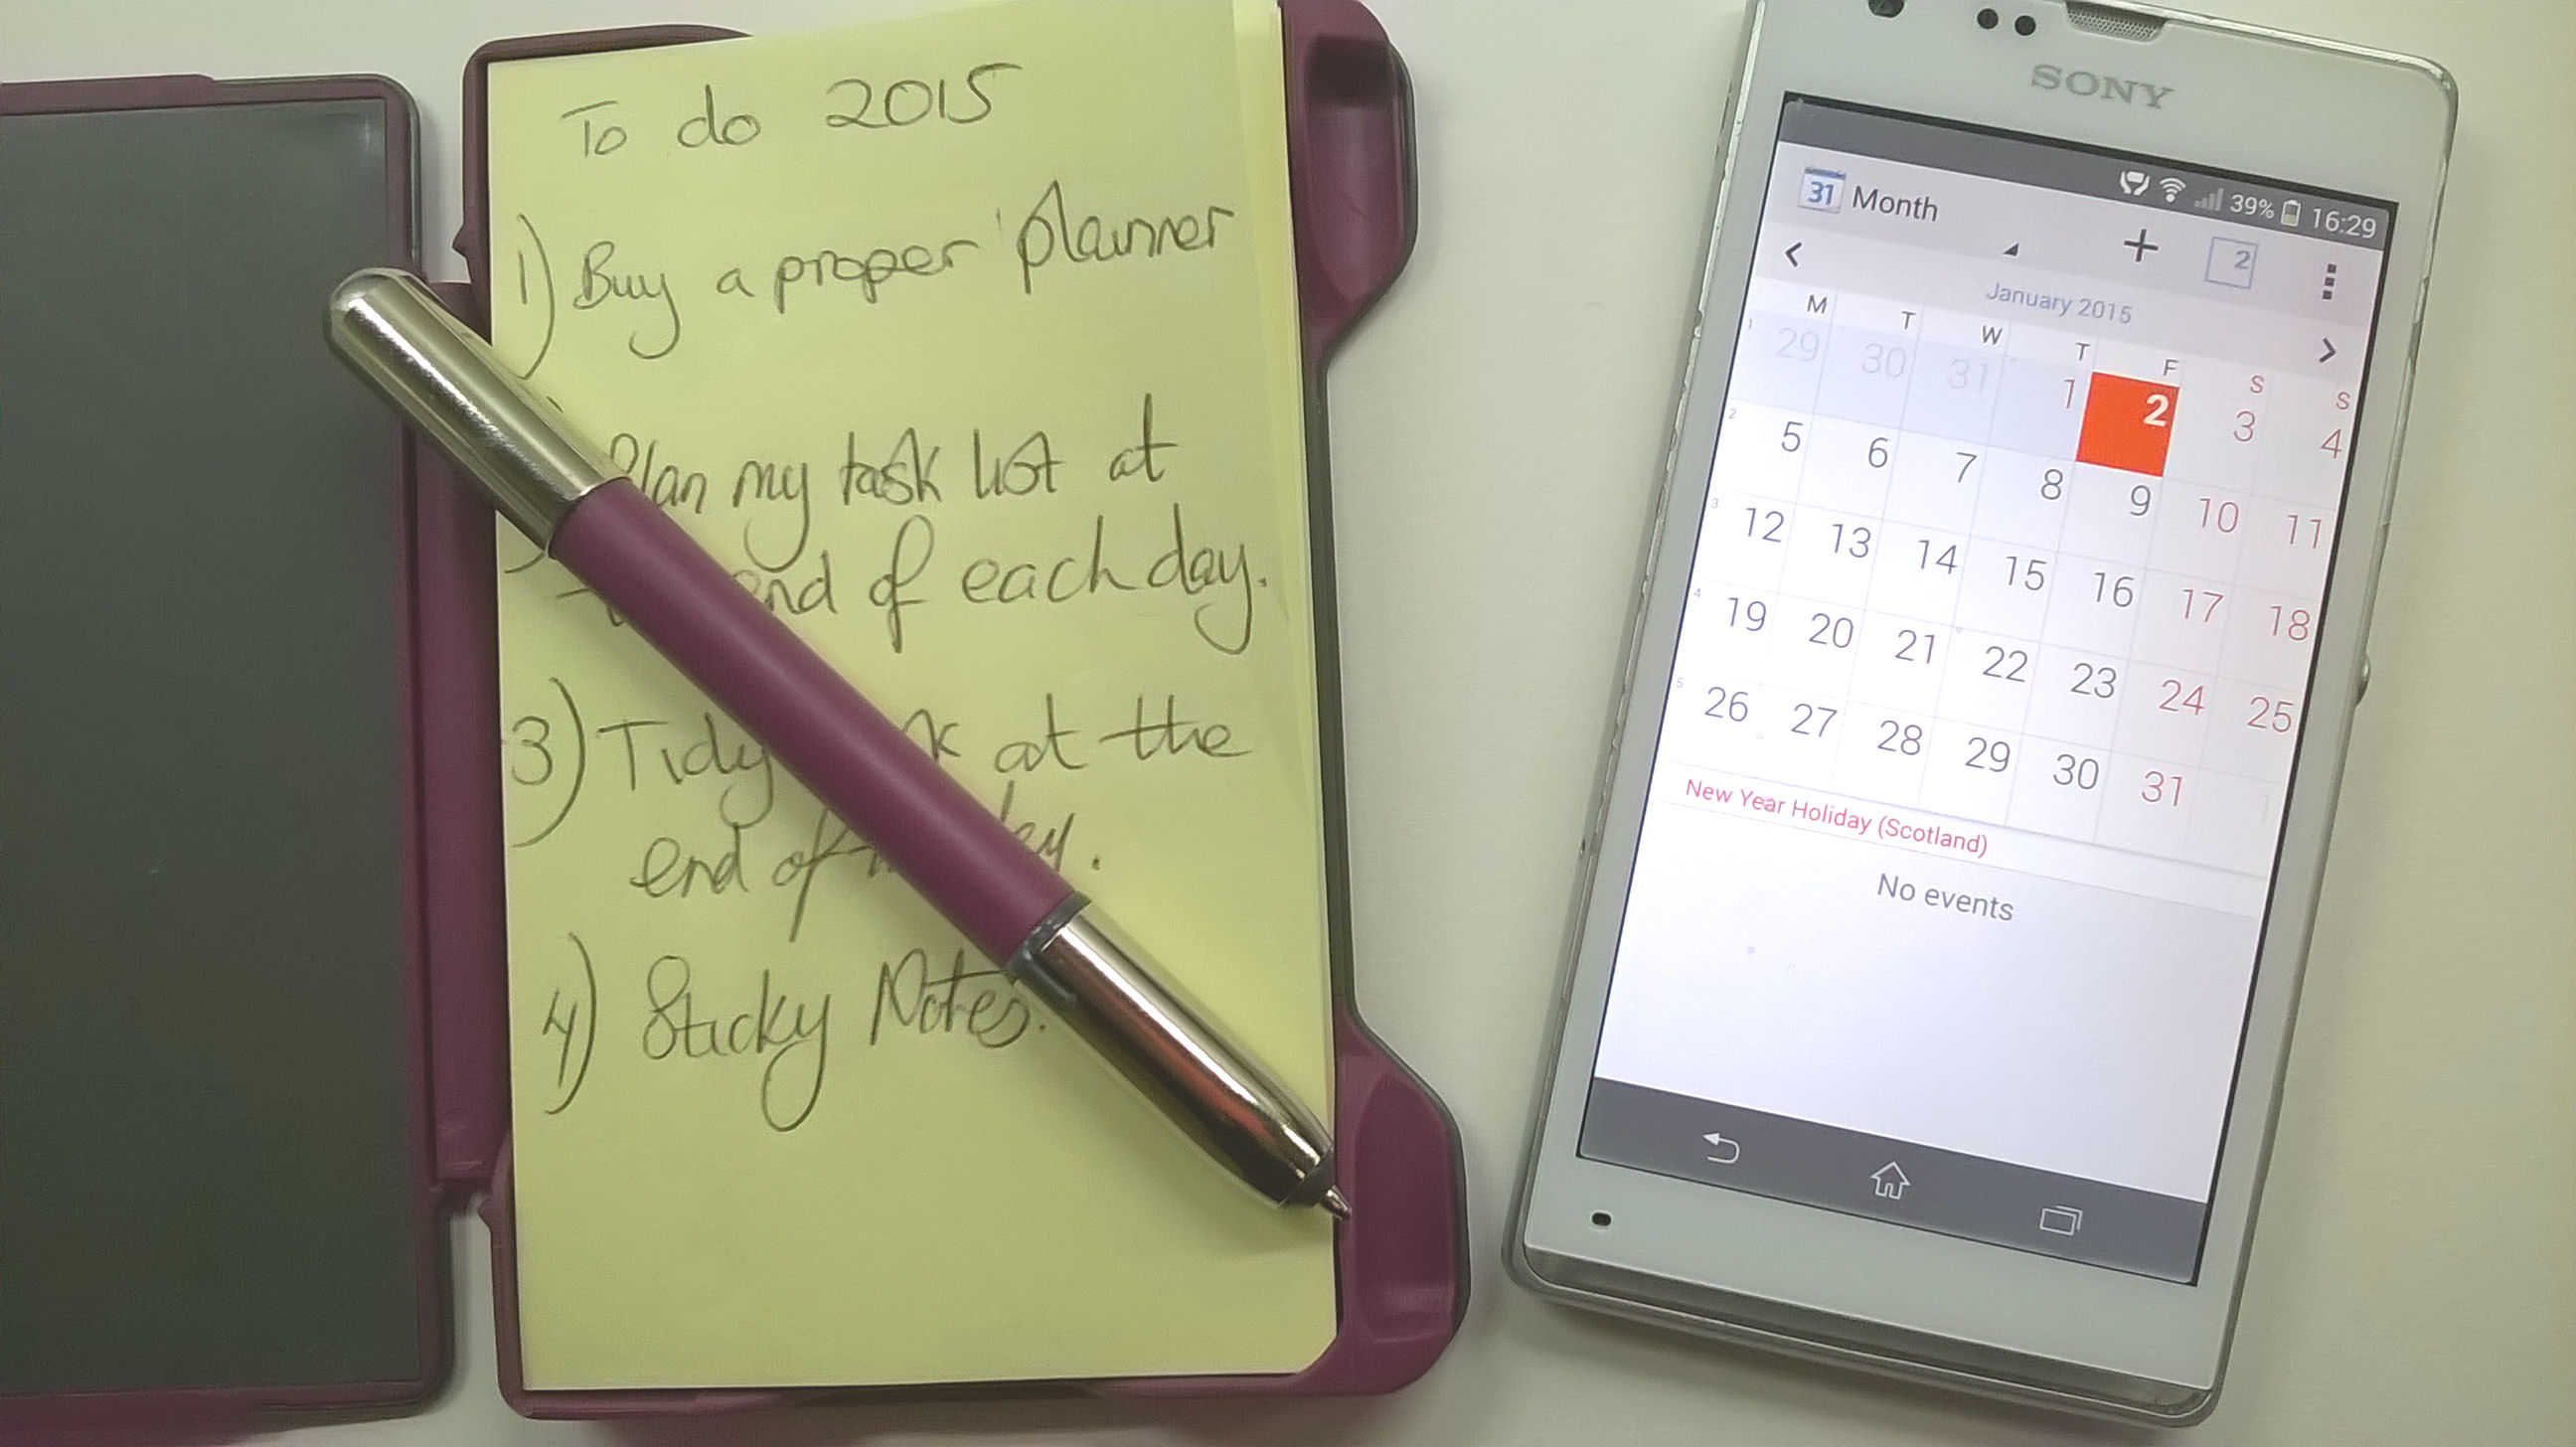 To do 2015
1) Buy a proper planner
Plan my task list at
end of each day.
3) Tidy at the
end of
4) Sticky Notes.
SONY
39% 16:29
31 Month + 2
January 2015
M T W T F S S
1 29 30 31 1 2 3 4
2 5 6 7 8 9 10 11
3 12 13 14 15 16 17 18
4 19 20 21 22 23 24 25
5 26 27 28 29 30 31
New Year Holiday (Scotland)
No events